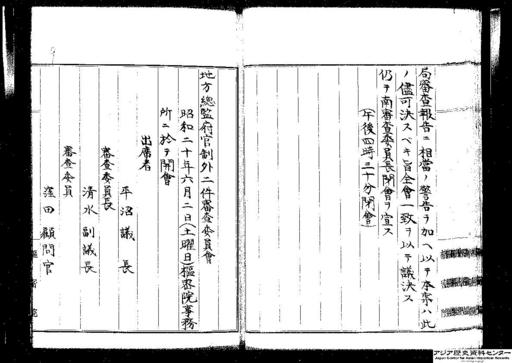 局審査報告ニ相當ノ警告ヲ加ヘ以テ本案ハ此
ノ儘可決スベキ旨全會一致ヲ以テ議決ス
仍テ南審査委員長閉會ヲ宣ス
(午後四時三十分閉會)
地方總監府官制外二件審査委員會
昭和二十年六月二日(土曜日)樞密院事務
所ニ於テ開會
出席者
平沼議長
審査委員長
清水副議長
審査委員
窪田顧問官
アジア歴史資料センター
Japan Center for Asian Historical Records